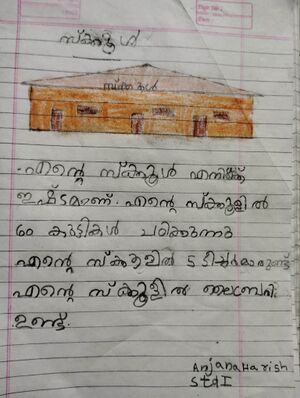 സ്ക്കൂൾ
സ്ക്കൂൾ
എന്റെ സ്ക്കൂൾ എനിക്ക്
ഇഷ്ടമാണ്. എന്റെ സ്ക്കൂളിൽ
60 കുട്ടികൾ പഠിക്കുന്നു
എന്റെ സ്ക്കൂളിൽ 5 ടീച്ചർമാരുണ്ട്
എന്റെ സ്ക്കൂളിൽ ലൈബ്രറി
ഉണ്ട്.
Anjana Harish
Std I